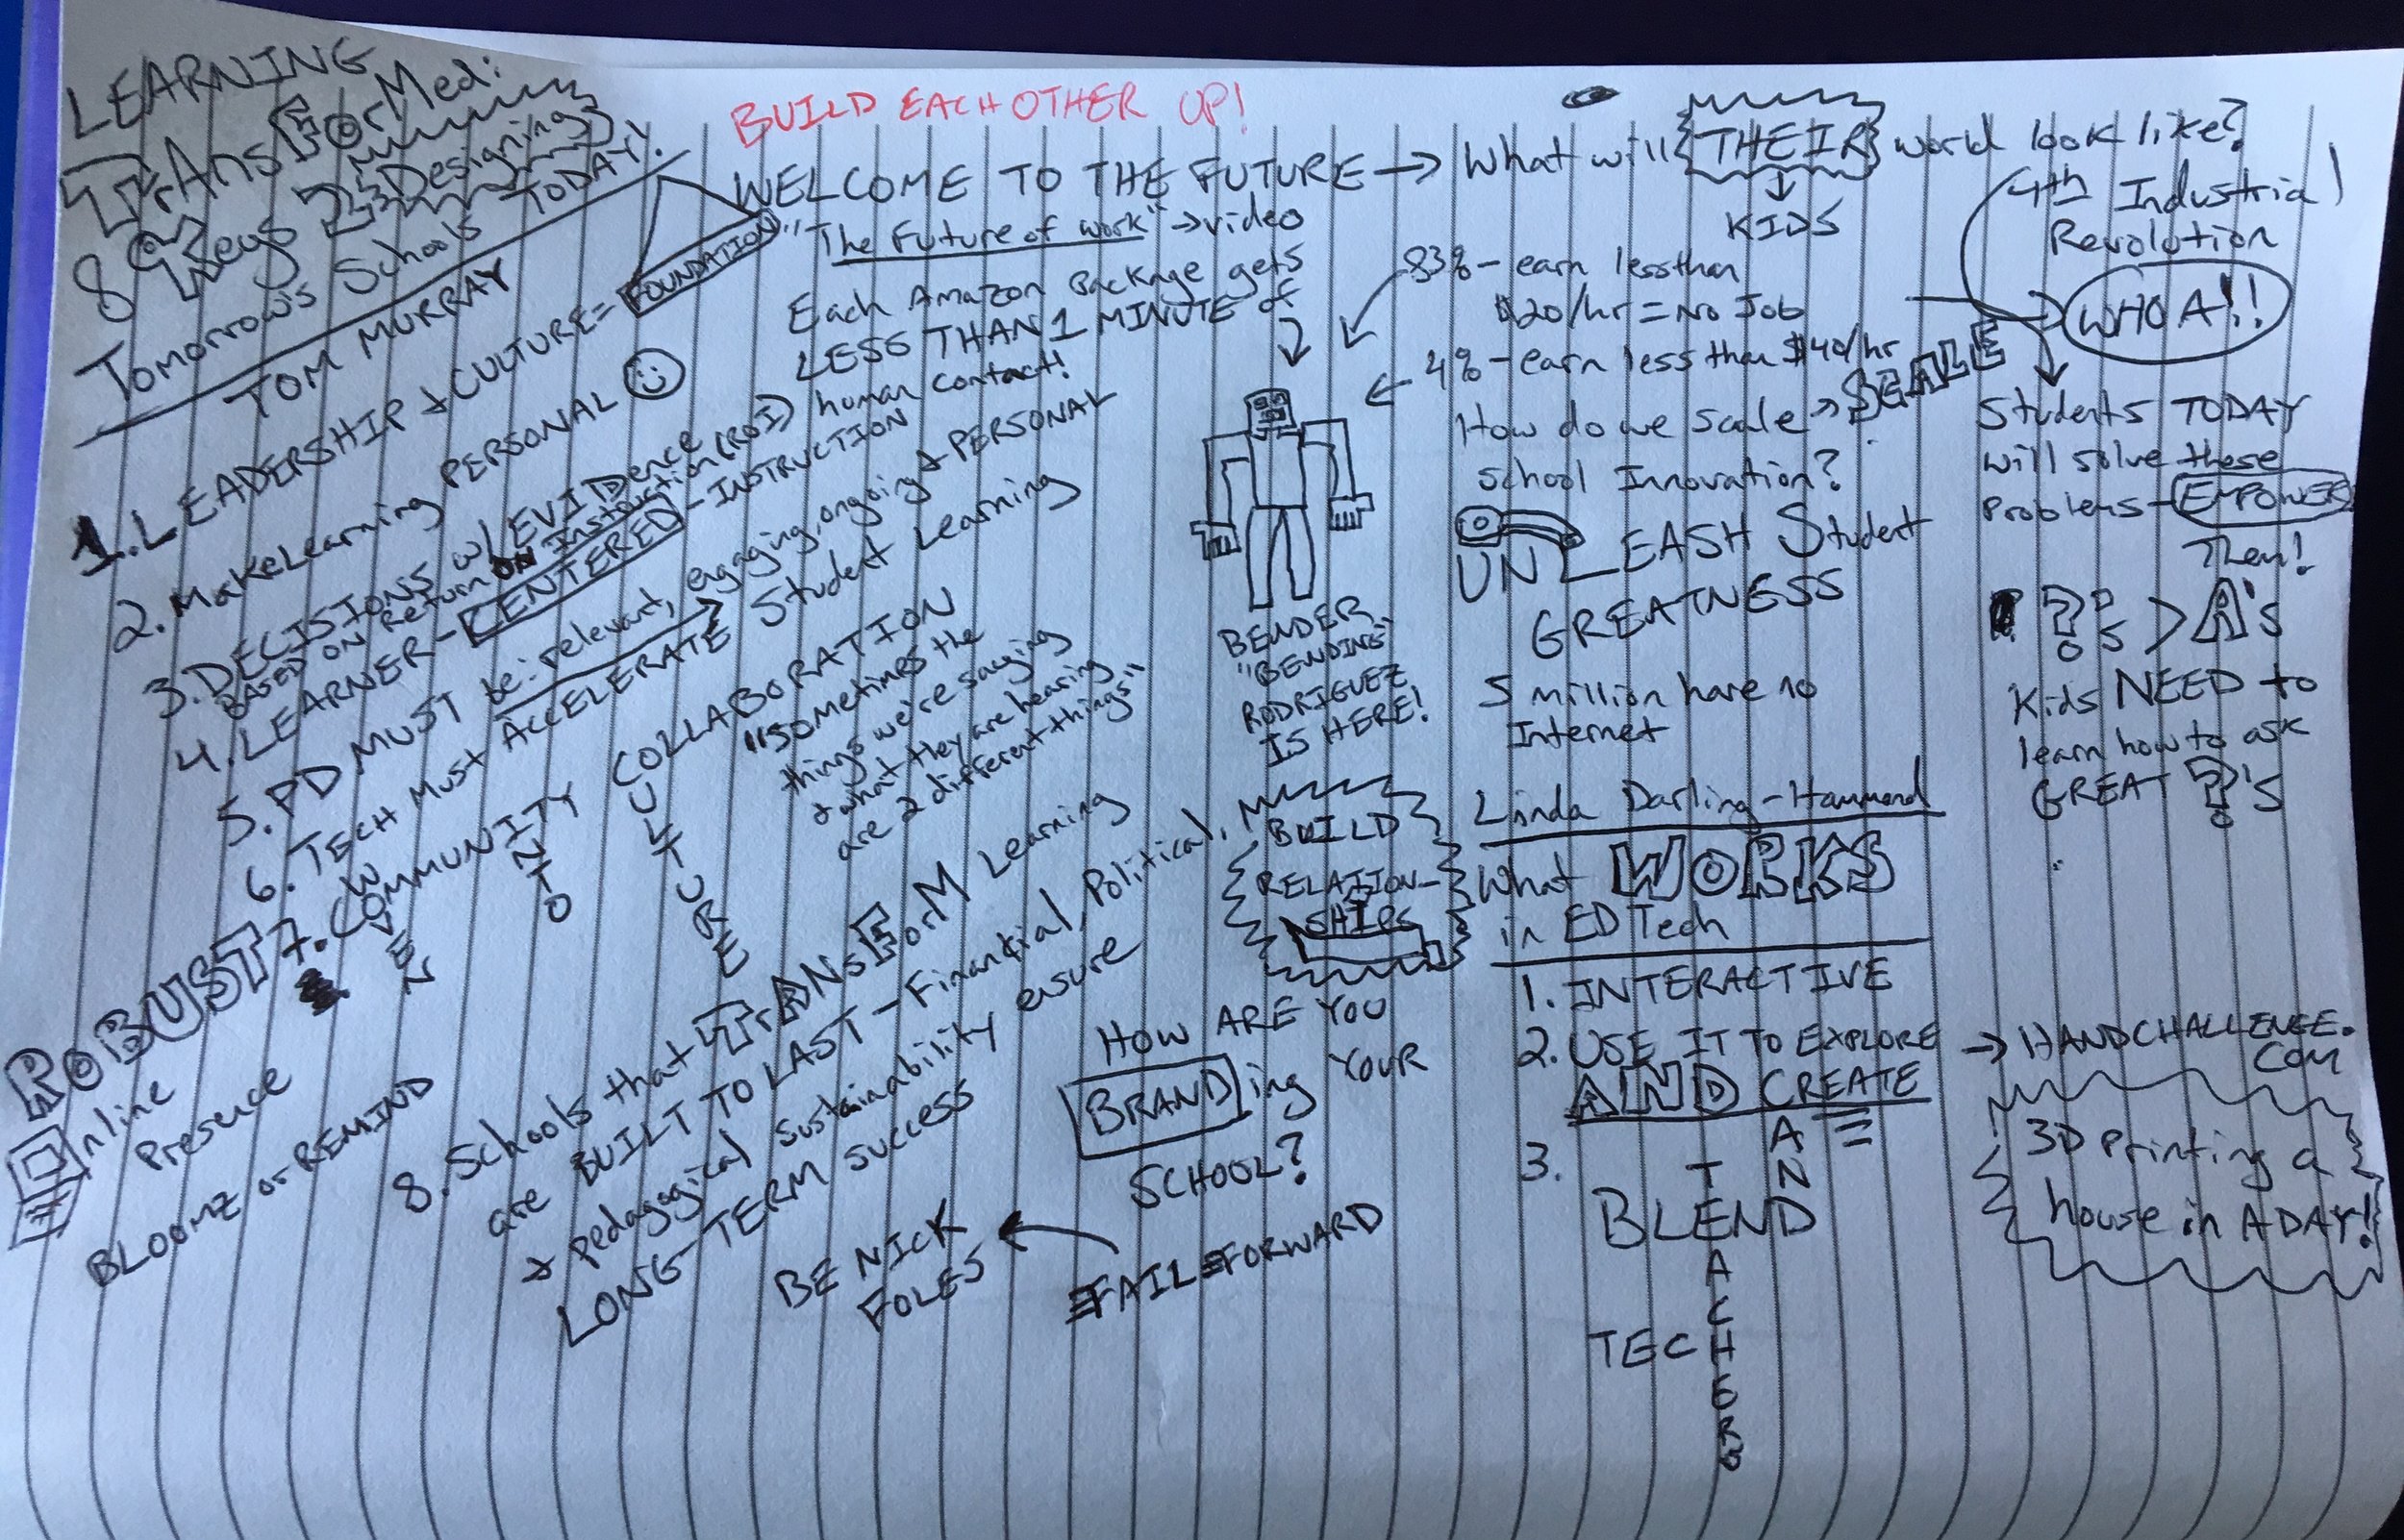 LEARNING
TrAnsForMed:
8 Keys 2 Designing
Tomorrow's Schools TODAY!
TOM MURRAY
1. LEADERSHIP & CULTURE = FOUNDATION
2. Make Learning PERSONAL
3. DECISIONS w/ EVIDence
BASED ON Return ON Instruction (ROI)
4. LEARNER-CENTERED-INSTRUCTION
5. PD MUST be: relevant, engaging, ongoing & PERSONAL
6. TECH Must ACCELERATE Student Learning
7. COMMUNITY COLLABORATION
WOVEN
INTO
CULTURE
"Sometimes the
things we're saying
& what they are hearing
are 2 different things"
RoBUST
Online
Presence
BLOOMZ or REMIND
8. Schools that TrANsForM Learning
are BUILT TO LAST - Financial, Political,
& Pedagogical Sustainability ensure
LONG-TERM success
BUILD EACH OTHER UP!
WELCOME TO THE FUTURE → What will THEIR world look like?
KIDS
"The Future of work" → video
Each Amazon Package gets
LESS THAN 1 MINUTE of
human contact!
83% - earn less than
$20/hr = No Job
4% - earn less than $40/hr
BENDER
"BENDING"
RODRIGUEZ
IS HERE!
How do we scale → SCALE
school Innovation?
UNLEASH Student
GREATNESS
5 million have no
Internet
4th Industrial
Revolution
WHOA!!
Students TODAY
will solve these
Problems - EMPOWER
Them!
?'s > A's
Kids NEED to
learn how to ask
GREAT ?'s
BUILD
RELATION-
SHIPS
HOW ARE YOU
BRANDing YOUR
SCHOOL?
FAIL FORWARD
BE NICK
FOLES
Linda Darling-Hammond
What WORKS
in ED Tech
1. INTERACTIVE
2. USE IT TO EXPLORE
AND CREATE
→ HANDCHALLENGE.
COM
3D Printing a
house in A DAY!
3.
BLEND
AND
TECH
TEACHERS